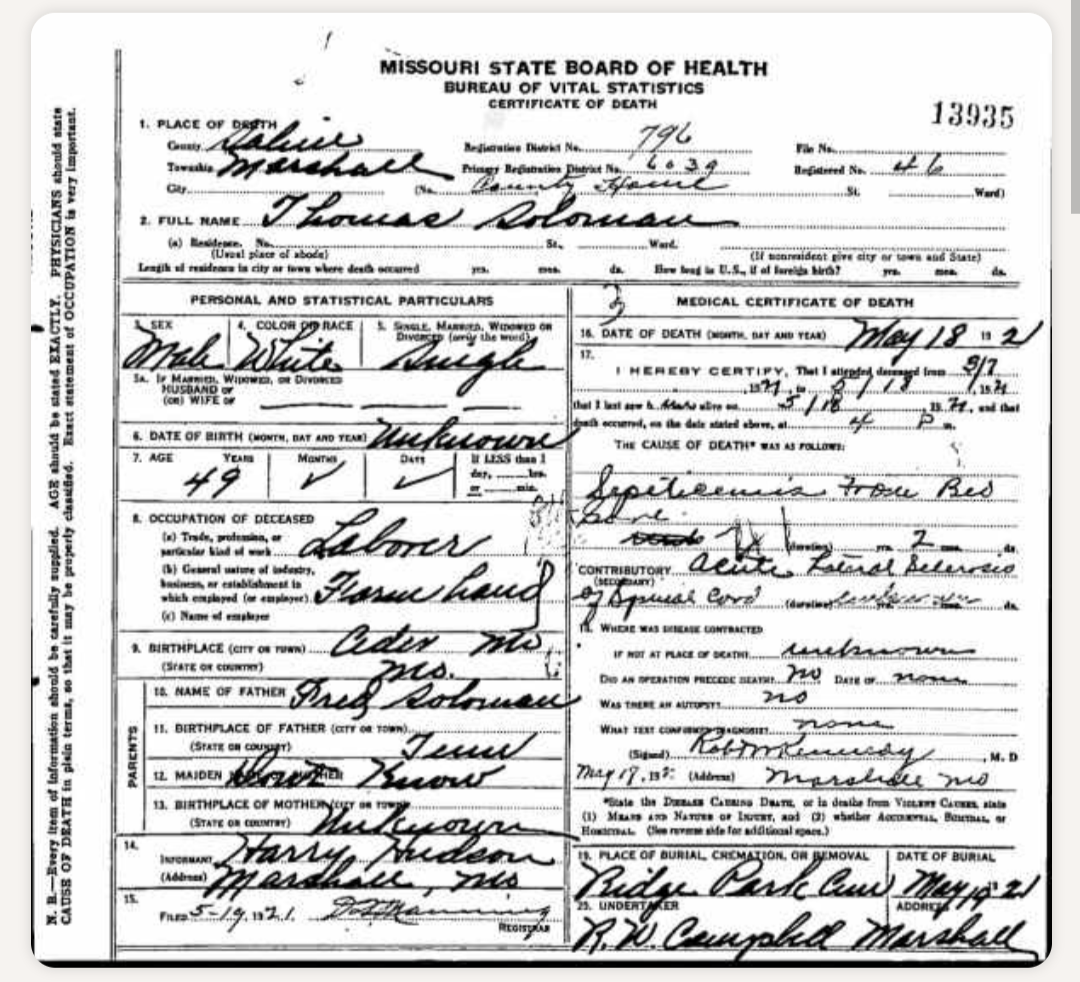 MISSOURI STATE BOARD OF HEALTH
BUREAU OF VITAL STATISTICS
CERTIFICATE OF DEATH
13935
1. PLACE OF DEATH
County Saline Registration District No. 796 File No.
Township Marshall Primary Registration District No. 6039 Registered No. 46
City (No. County Home St. Ward)
2. FULL NAME Thomas Soloman
(a) Residence. No. St. Ward.
(Usual place of abode) (If nonresident give city or town and State)
Length of residence in city or town where death occurred yrs. mos. ds. How long in U.S., if of foreign birth? yrs. mos. ds.
PERSONAL AND STATISTICAL PARTICULARS
3. SEX 4. COLOR OR RACE 5. SINGLE, MARRIED, WIDOWED OR DIVORCED (write the word)
Male White Single
5A. IF MARRIED, WIDOWED, OR DIVORCED
HUSBAND OF
(OR) WIFE OF
6. DATE OF BIRTH (MONTH, DAY AND YEAR) Unknown
7. AGE YEARS MONTHS DAYS If LESS than 1 day, hrs. or min.
49 ✓ ✓
8. OCCUPATION OF DECEASED
(a) Trade, profession, or
particular kind of work Laborer
(b) General nature of industry,
business, or establishment in
which employed (or employer) Farm hand
(c) Name of employer
9. BIRTHPLACE (CITY OR TOWN)
(STATE OR COUNTRY) Mo.
PARENTS
10. NAME OF FATHER Fred Soloman
11. BIRTHPLACE OF FATHER (CITY OR TOWN)
(STATE OR COUNTRY) Tenn
12. MAIDEN NAME OF MOTHER Dont Know
13. BIRTHPLACE OF MOTHER (CITY OR TOWN)
(STATE OR COUNTRY) Unknown
14.
INFORMANT Harry Hudson
(Address) Marshall, Mo
15.
FILED 5-19, 1921. Manning
REGISTRAR
MEDICAL CERTIFICATE OF DEATH
16. DATE OF DEATH (MONTH, DAY AND YEAR) May 18 1921
17.
I HEREBY CERTIFY, That I attended deceased from
, 1921, to 5/18, 1921
that I last saw h alive on 5/18, 1921, and that
death occurred, on the date stated above, at 4 P m.
THE CAUSE OF DEATH* WAS AS FOLLOWS:
Septicemia from Bed
Sore
(duration) yrs. 2 mos. ds.
CONTRIBUTORY Acute Lateral Sclerosis
(SECONDARY)
of Spinal Cord (duration) yrs. mos. ds.
18. WHERE WAS DISEASE CONTRACTED
IF NOT AT PLACE OF DEATH? unknown
DID AN OPERATION PRECEDE DEATH? no DATE OF none
WAS THERE AN AUTOPSY? no
WHAT TEST CONFIRMED DIAGNOSIS? none
(Signed) Robt M Kennedy, M. D
(Address) Marshall Mo
*State the DISEASE CAUSING DEATH, or in deaths from VIOLENT CAUSES, state
(1) MEANS AND NATURE OF INJURY, and (2) whether ACCIDENTAL, SUICIDAL, or
HOMICIDAL. (See reverse side for additional space.)
19. PLACE OF BURIAL, CREMATION, OR REMOVAL DATE OF BURIAL
Ridge Park Cem May 19 1921
20. UNDERTAKER ADDRESS
R. W. Campbell Marshall
N. B.—Every item of information should be carefully supplied. AGE should be stated EXACTLY. PHYSICIANS should state
CAUSE OF DEATH in plain terms, so that it may be properly classified. Exact statement of OCCUPATION is very important.